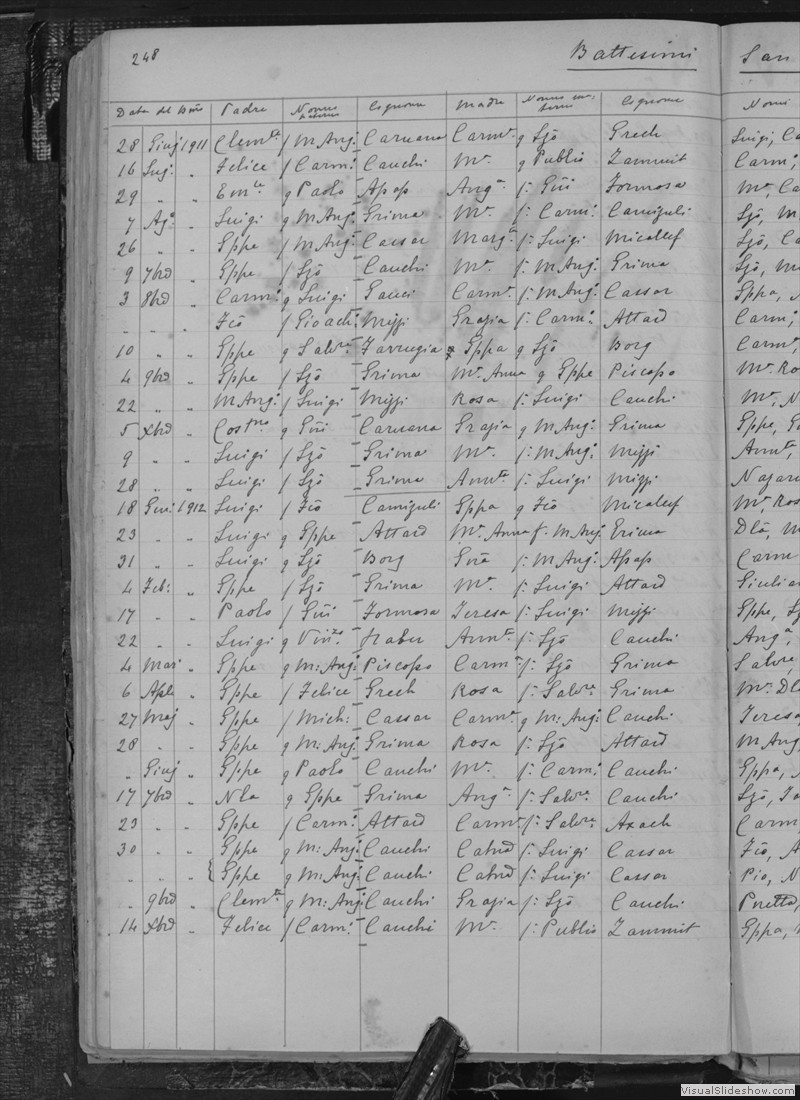 248 Battesimi San
Data del Bmo Padre Nonno paterno Cognome Madre Nonno materno Cognome Nomi
28 Giug 1911 Clemte f M. Ang. Caruana Carma. g Sjō Grech Luigi, Ca
16 Lug. " Felice f Carmo. Cauchi Ma. g Publio Zammit Carm,
29 " " Emle g Paolo Apap Anga. f: Gni Formosa Ma, Ca
7 Ago. " Luigi g M. Ang. Grima Ma. f: Carmo. Camizuli Sjō, M
26 " " Gppe f M. Ang. Cassar Marga. f: Luigi Micallef Sjō, Ca
9 7bre " Gppe f Sjō Cauchi Ma. f: M. Ang. Grima Sjō, M
3 8bre " Carmo. g Luigi Gauci Carma. f: M. Ang. Cassar Gppa,
" " " Fcō f Gioachi. Mizzi Grazia f: Carmo. Attard Carm,
10 " " Gppe g Salvre Farrugia Gppa g Sjō Borg Carm,
4 9bre " Gppe f Sjō Grima Ma. Anna g Gppe Piscopo Ma. Ro
22 " " M. Ang. f Luigi Mizzi Rosa f: Luigi Cauchi Ma, N
5 Xbre " Costno g Gni Caruana Grazia g M. Ang. Grima Gppe, G
9 " " Luigi f Sjō Grima Ma. f: M. Ang. Mizzi Annta,
28 " " Luigi f Sjō Grima Annta. f: Luigi Mizzi Nazare
18 Gen. 1912 Luigi f Fcō Camizuli Gppa g Fcō Micallef Ma, Ros
23 " " Luigi g Gppe Attard Ma. Anna f. M. Ang. Grima Dla, M
31 " " Luigi g Sjō Borg Gna f: M. Ang. Apap Carm
4 Feb. " Gppe f Sjō Grima Ma. f: Luigi Attard Giulian
17 " " Paolo f Gni Formosa Teresa f: Luigi Mizzi Gppe, Sj
22 " " Luigi g Vinzo Haber Annta. f: Sjō Cauchi Anga,
4 Mar " Gppe g M: Ang. Piscopo Carma. f: Sjō Grima Salvre,
6 Aple " Gppe f Felice Grech Rosa f: Salvre Grima Ma. Dla
27 Mag " Gppe f Mich: Cassar Carma. g M: Ang: Cauchi Teresa
28 " " Gppe g M: Ang. Grima Rosa f: Sjō Attard M Ang,
" Giug " Gppe g Paolo Cauchi Ma. f: Carmo. Cauchi Gppa,
17 7bre " Nla g Gppe Grima Anga. f: Salvre. Cauchi Sjō,
23 " " Gppe f Carmo. Attard Carma. f: Salvre. Axach Carm
30 " " Gppe g M: Ang. Cauchi Catnā f: Luigi Cassar Fcō, A
" " " { Gppe g M: Ang. Cauchi Catnā f: Luigi Cassar Pio, N
" 9bre " Clemte g M: Ang. Cauchi Grazia f: Sjō Cauchi
14 Xbre " Felice f Carmo. Cauchi Ma. f: Publio Zammit Gppa,
VisualSlideshow.com